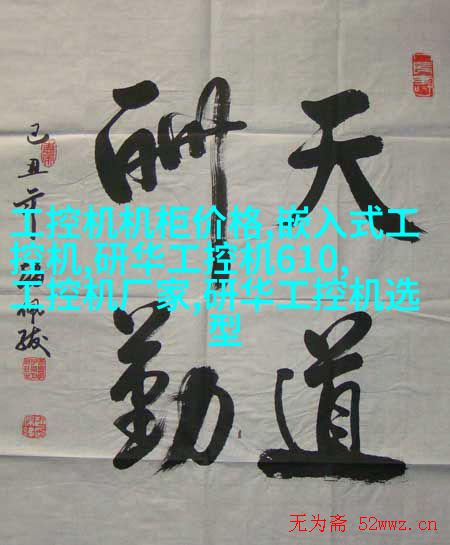 天道
酬勤
己丑
工控机机柜价格,嵌入式工
控机,研华工控机610,
工控机厂家,研华工控机选
型
无为斋 52wwz.cn